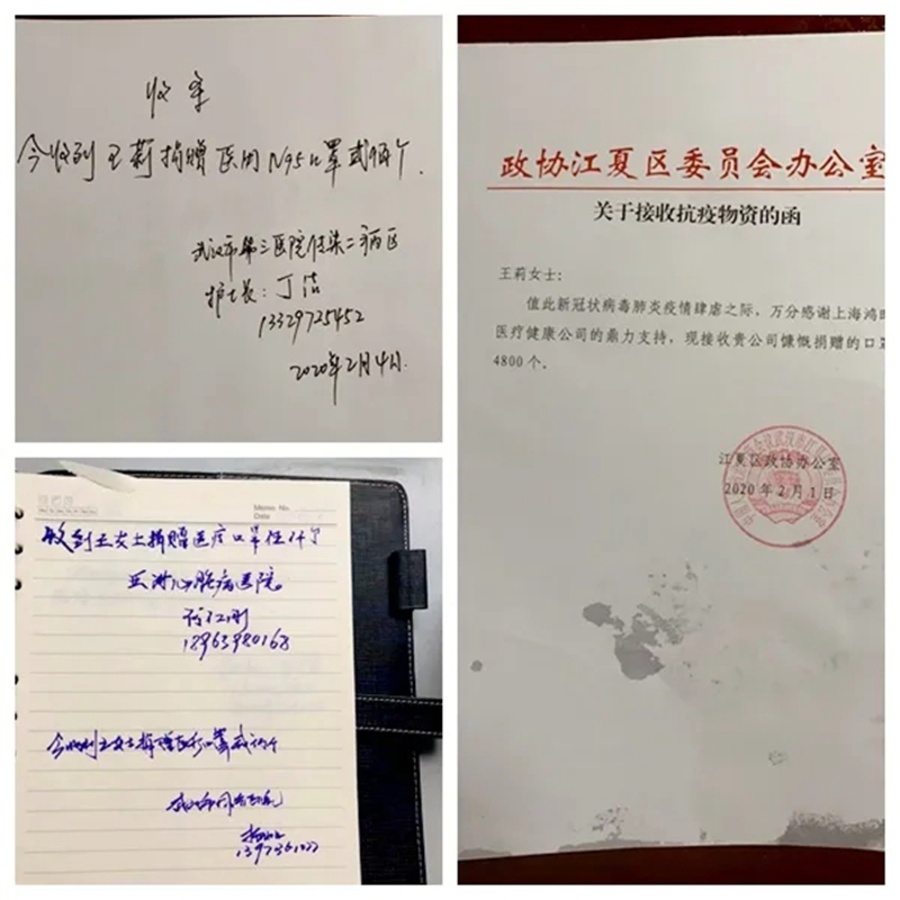 收字
今收到王莉捐赠医用N95口罩贰佰个.
武汉市第三医院传染二病区
护士长：丁洁
13329725452
2020年2月4日.
Memo No.
Date
收到王女士捐赠医疗口罩
亚洲心脏病医院
18963980168
今收到王女士捐赠医疗口罩贰佰个
政协江夏区委员会办公室
关于接收抗疫物资的函
王莉女士：
值此新冠状病毒肺炎疫情肆虐之际，万分感谢上海鸿
医疗健康公司的鼎力支持，现接收贵公司慷慨捐赠的口罩
4800个。
江夏区政协办公室
2020年2月1日